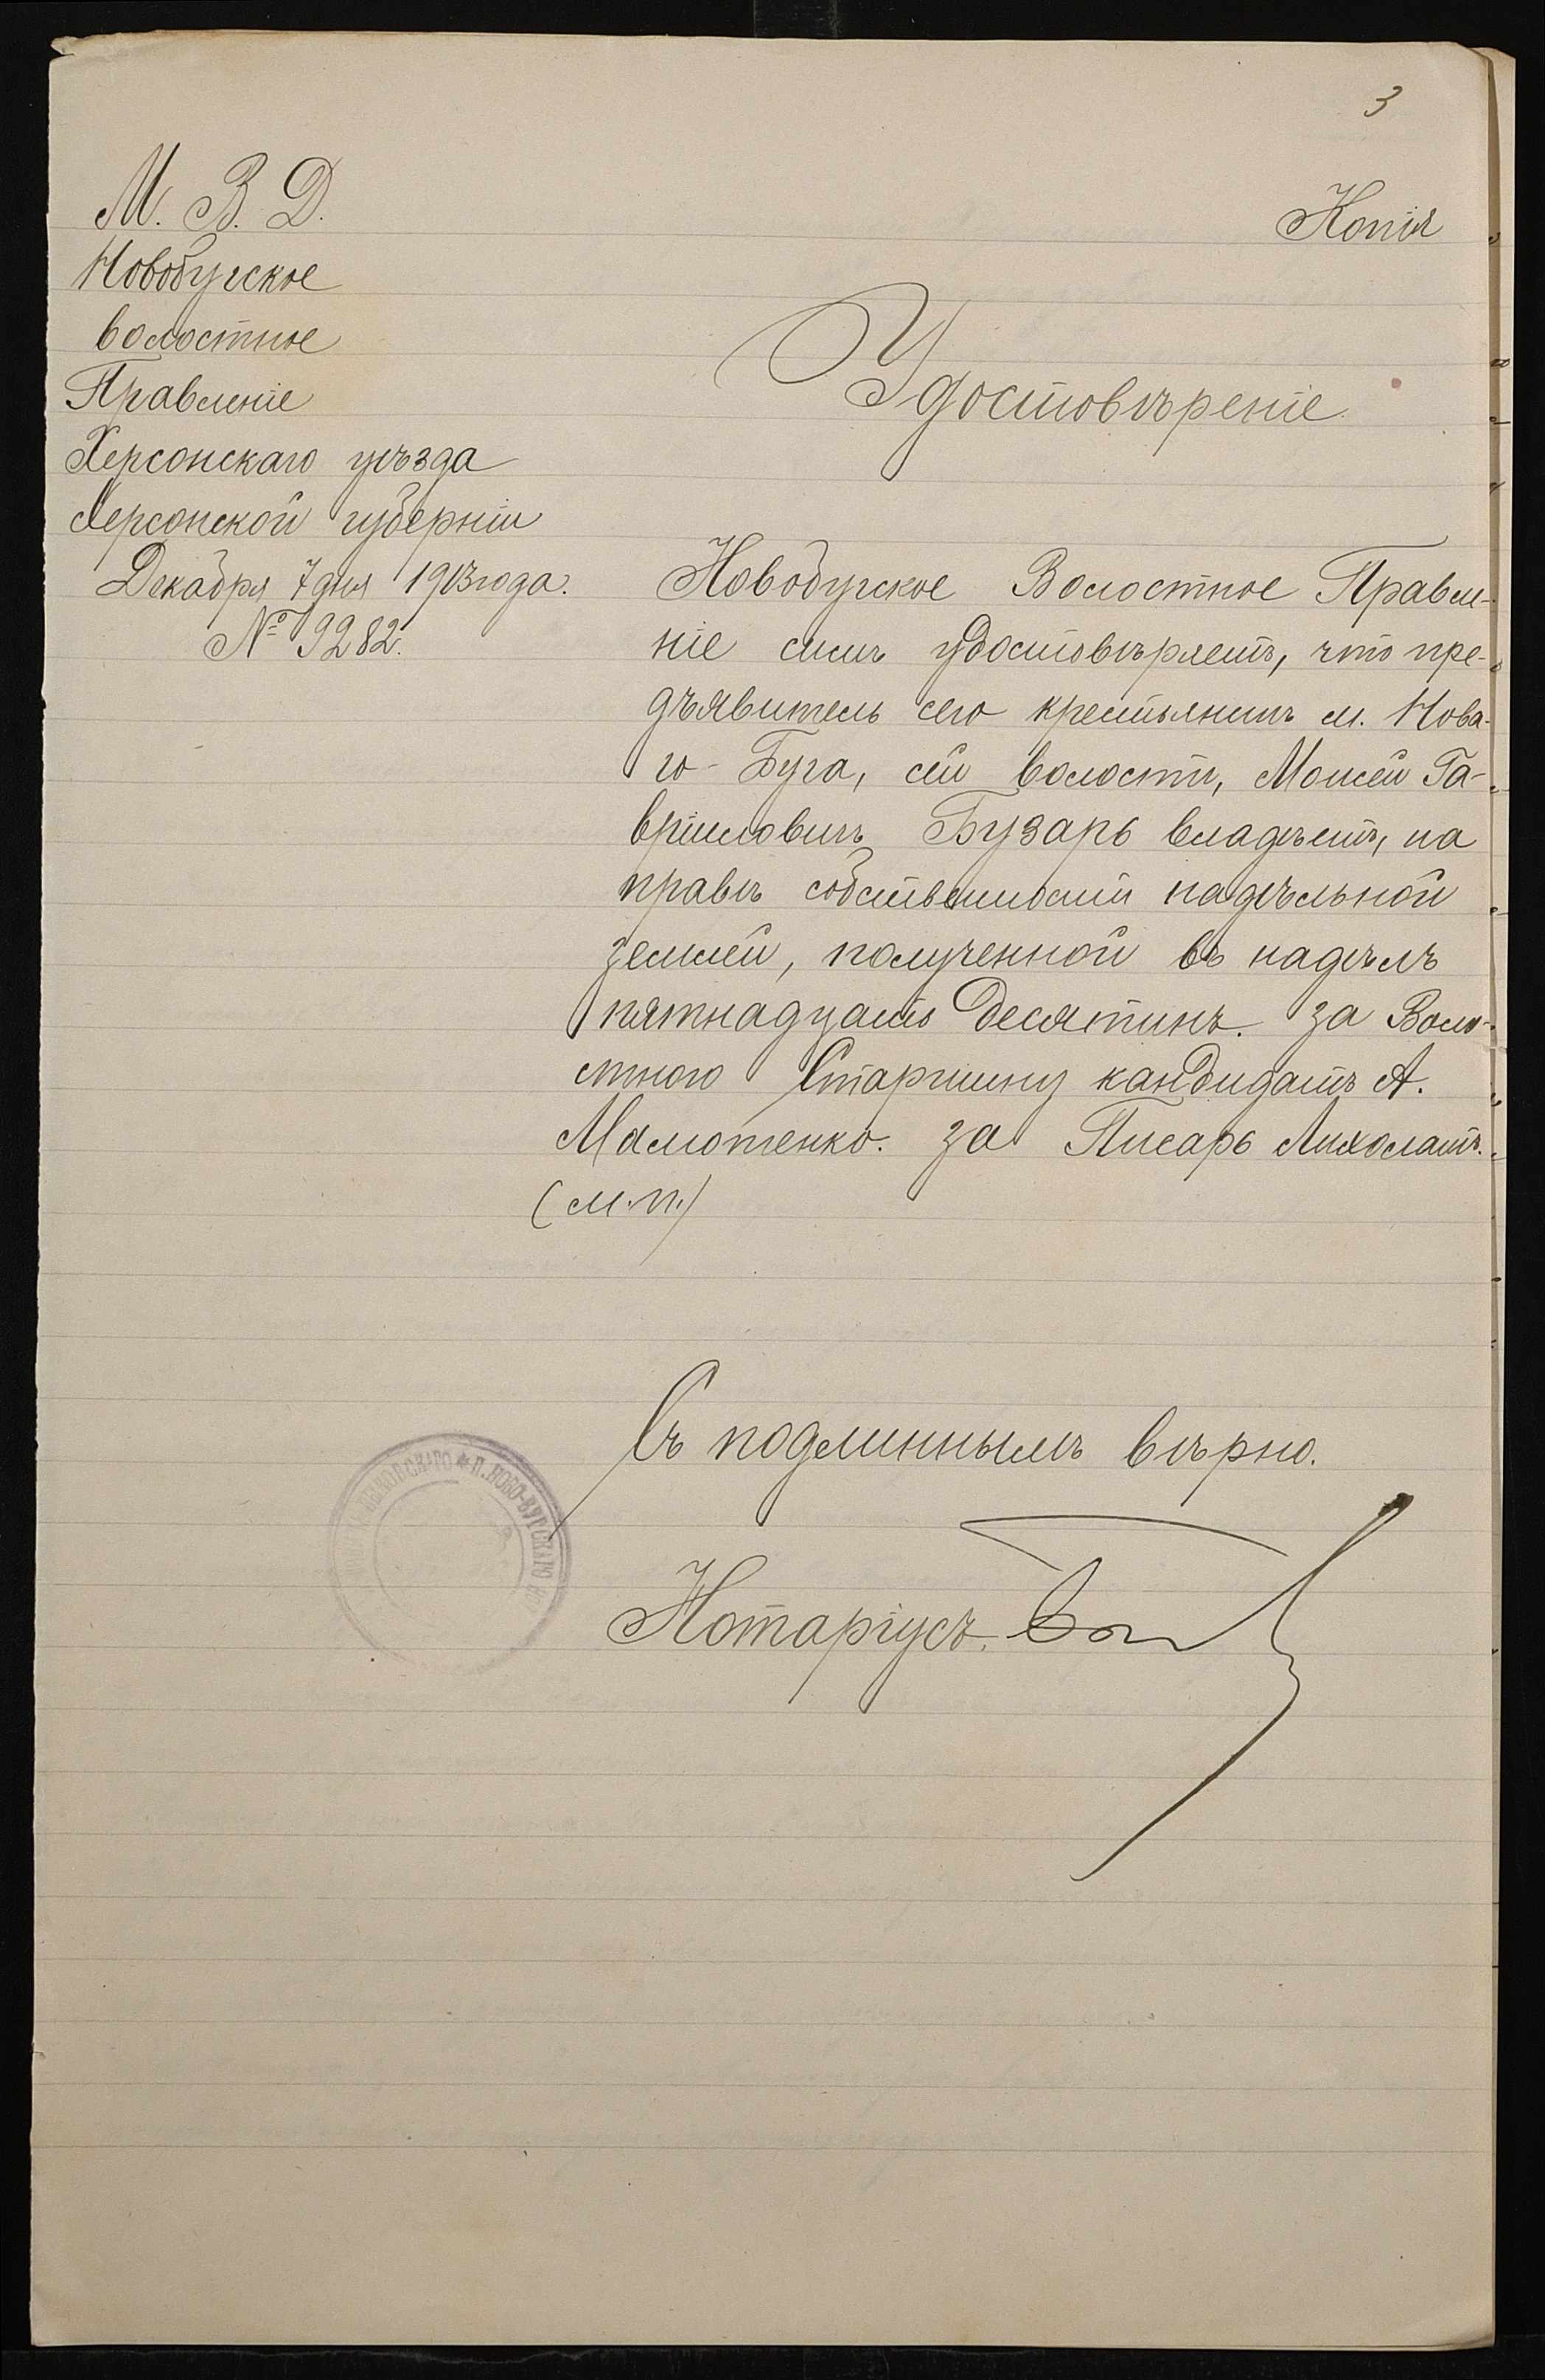 3
М. В. Д.
Новобугское
волостное
Правленіе
Херсонскаго уѣзда
Херсонской губерніи
Декабря 7 дня 1913 года.
№ 9282.
Копія
Удостовѣреніе.
Новобугское Волостное Правле-
ніе симъ удостовѣряетъ, что пре-
дъявитель сего крестьянинъ м. Нова-
го-Буга, сей волости, Моисей Га-
вріиловичъ Бузарь владѣетъ, на
правѣ собственности надѣльной
землей, полученной въ надѣлъ
пятнадцать десятинъ. За Воло-
стного Старшину кандидатъ А.
Малютенко. За Писарь Лихолатъ.
(м.п.)
Съ подлиннымъ вѣрно.
Нотаріусъ.
П. НОВО-БУГСКАГО